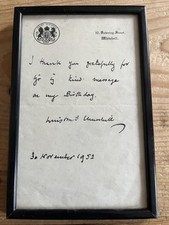 10, Downing Street,
Whitehall.
I thank you gratefully for
yr kind message
on my Birthday.
Winston S. Churchill
30 November 1953